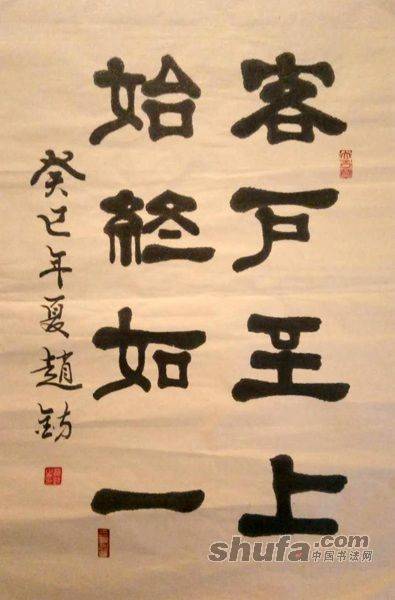 客户至上
始终如一
癸巳年夏趙鈁
shufa.com
中国书法网